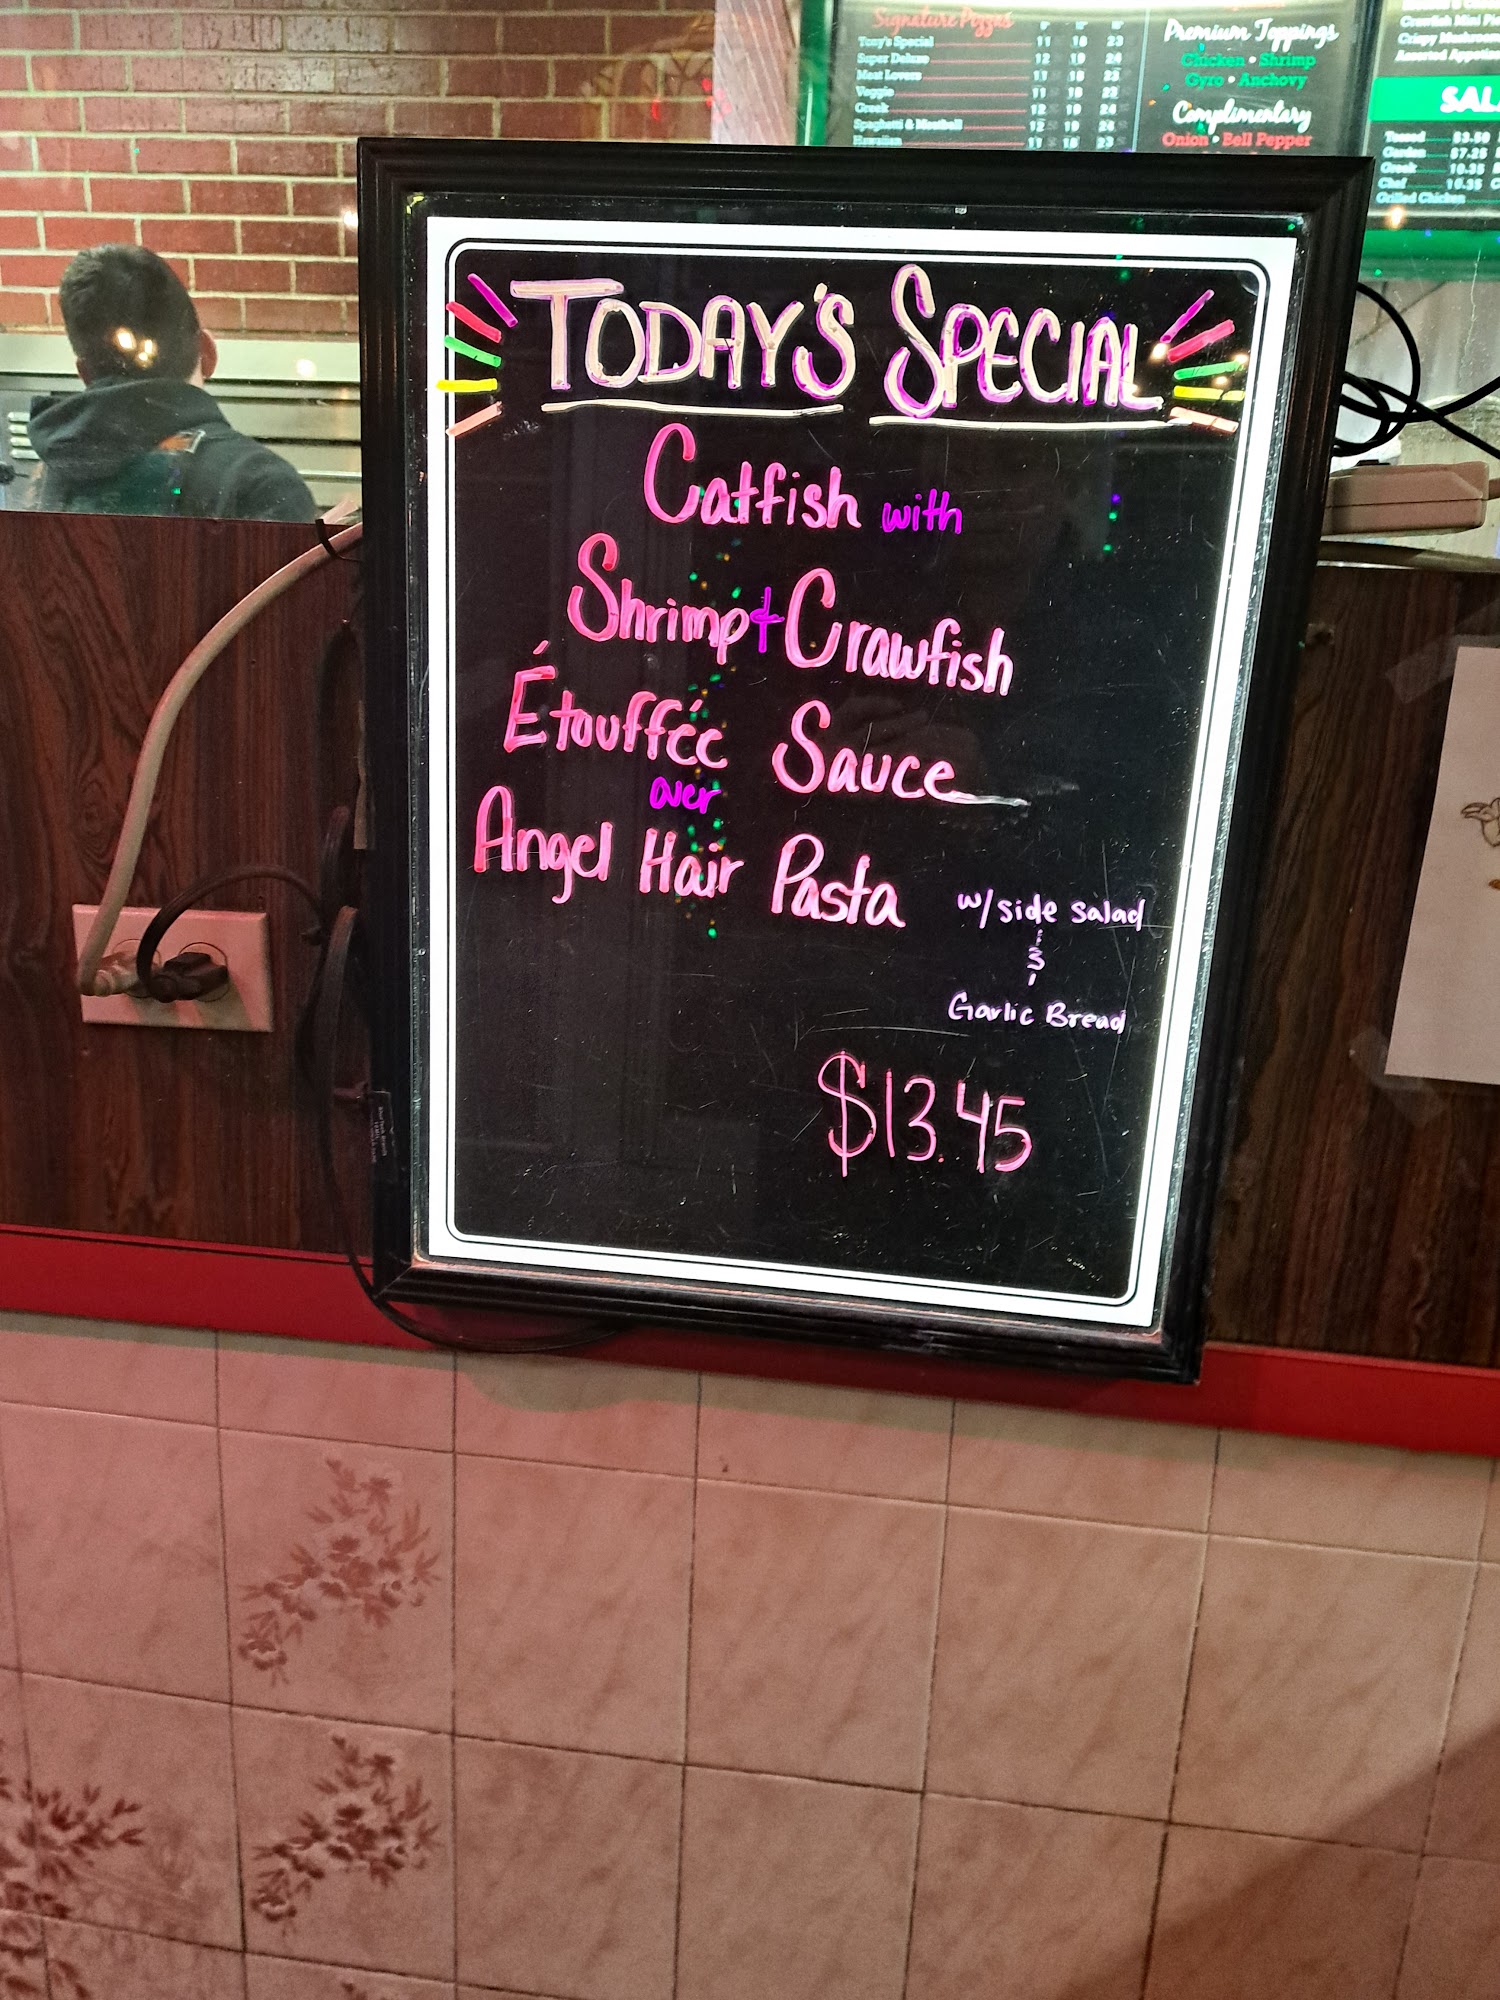 Signature Pizzas
Tony's Special 11 18 23
Super Deluxe 12 19 24
Meat Lovers 11 18 23
Veggie 11 18 23
Greek 12 19 24
Spaghetti & Meatball 12 19 24
Hawaiian 11 18 23
Premium Toppings
Chicken • Shrimp
Gyro • Anchovy
Complimentary
Onion • Bell Pepper
Crawfish Mini
Crispy Mushroom
Assorted
SAL
Tossed $3.50
Garden $7.25
Greek 10.25
Chef 10.25
Grilled Chicken
TODAY'S SPECIAL
Catfish with
Shrimp & Crawfish
Étouffée Sauce
over
Angel Hair Pasta
w/ side salad
&
Garlic Bread
$13.45